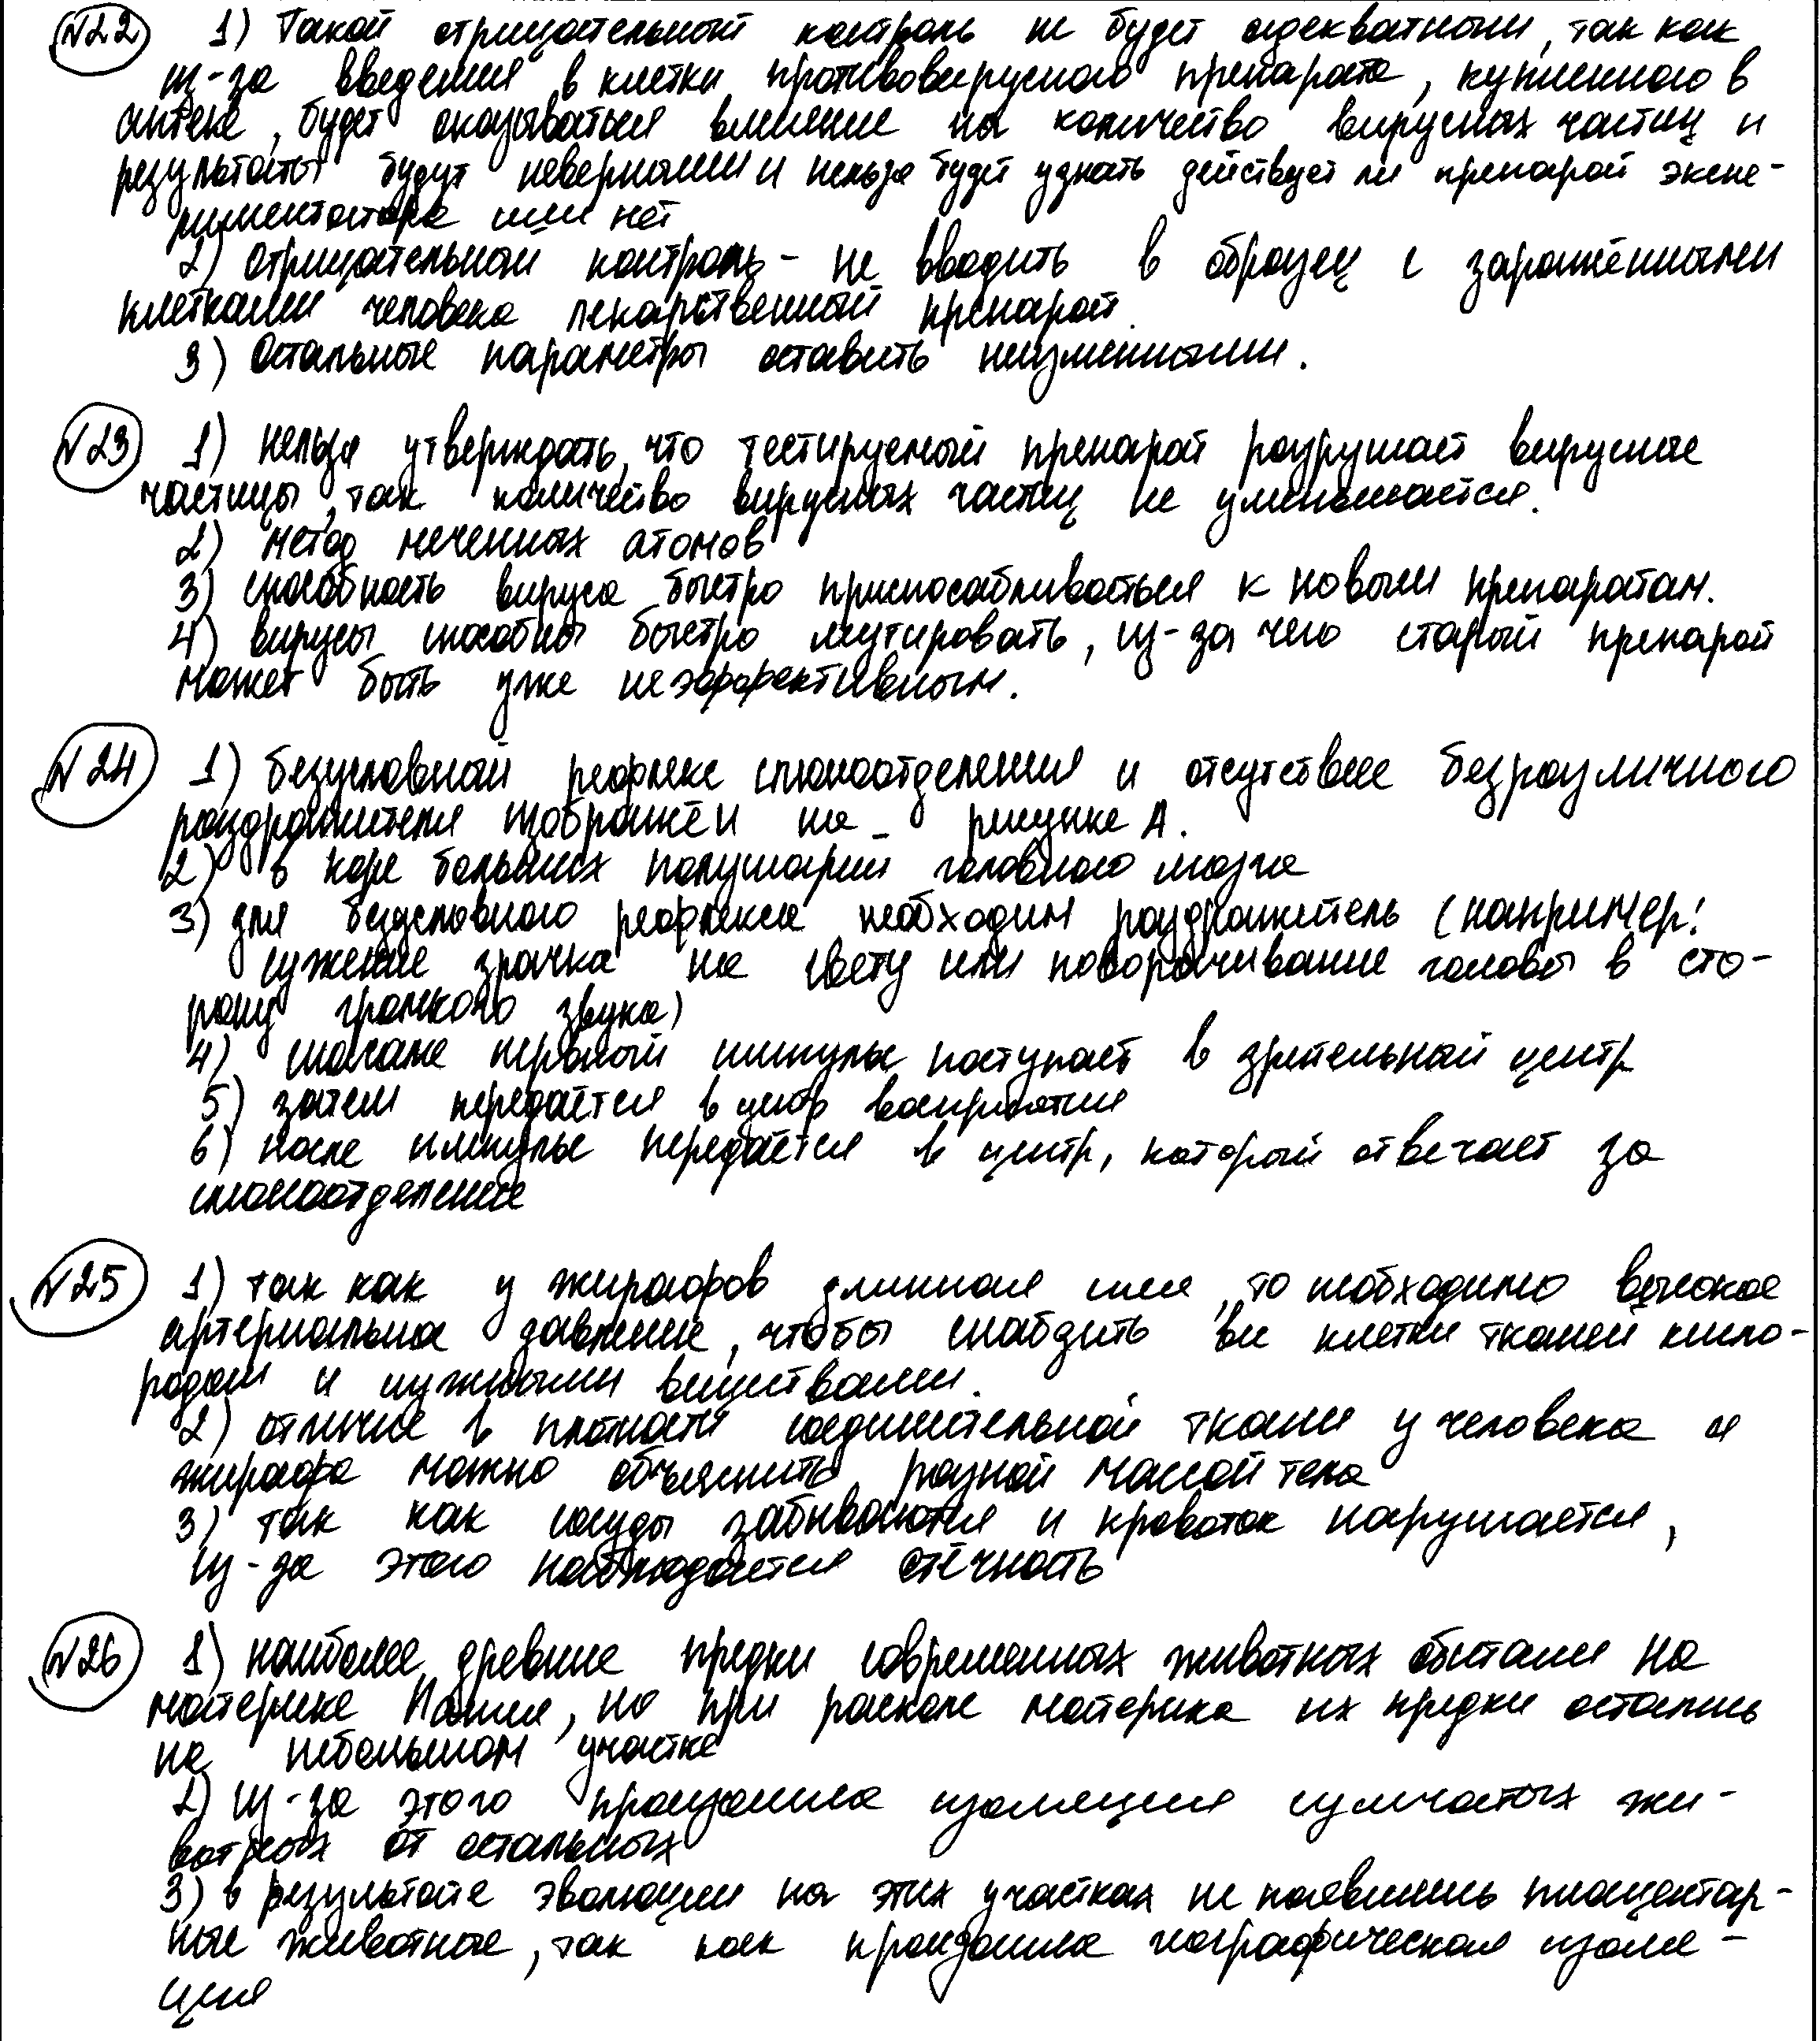 №22 1) Такой отрицательный контроль не будет адекватным, так как
из-за введения в клетки противовирусного препарата, купленного в
аптеке, будет оказываться влияние на количество вирусных частиц и
результаты будут неверными и нельзя будет узнать действует ли препарат экспе-
риментатора или нет
2) отрицательный контроль - не вводить в образец с заражёнными
клетками человека лекарственный препарат.
3) Остальные параметры оставить неизменными.
№23 1) нельзя утверждать, что тестируемый препарат разрушает вирусные
частицы, так количество вирусных частиц не уменьшается.
2) метод меченных атомов
3) способность вируса быстро приспосабливаться к новым препаратам.
4) вирусы способны быстро мутировать, из-за чего старый препарат
может быть уже неэффективным.
№24 1) безусловный рефлекс слюноотделения и отсутствие безразличного
раздражителя изображён на рисунке А.
2) в коре больших полушарий головного мозга
3) для безусловного рефлекса необходим раздражитель (например:
сужение зрачка на свету или поворачивание головы в сто-
рону громкого звука)
4) сначала нервный импульс поступает в зрительный центр
5) затем передаётся в восприятия
6) после импульс передаётся в центр, который отвечает за
слюноотделение
№25 1) так как у жирафов длинная шея, то необходимо высокое
артериальное давление, чтобы снабдить все клетки тканей кисло-
родом и нужными веществами.
2) отличие в плотности соединительной ткани у человека и
жирафа можно объяснить разной массой тела
3) так как сосуды забиваются и кровоток нарушается,
из-за этого наблюдается отёчность
№26 1) наиболее древние предки современных животных обитали на
материке Пангея, но при расколе материка их предки остались
на небольшом участке
2) из-за этого произошла изоляция сумчатых жи-
вотных от остальных
3) в результате эволюции на этих участках не появились плацентар-
ные животные, так как произошла географическая изоля-
ция